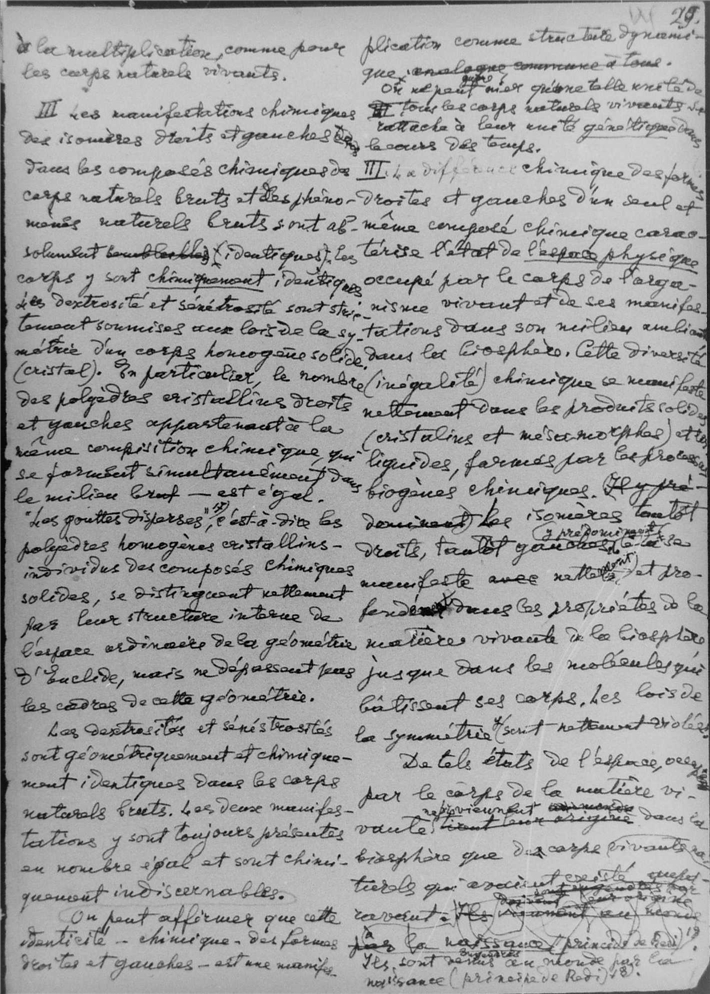 29.
à la multiplication, comme pour
les corps naturels vivants.
III Les manifestations chimiques
des isomères droits et gauches
dans les composés chimiques de
corps naturels bruts et des phéno-
mènes naturels bruts sont ab-
solument semblables (identiques). Les
corps y sont chimiquement identiques.
Les dextrosité et sénéstrosité sont stric-
tement soumises aux lois de la sy-
métrie d'un corps homogène solide.
(cristal). En particulier, le nombre
des polyèdres cristallins droits
et gauches appartenant à la
même composition chimique, qui
se forment simultanément dans
le milieu brut — est égal.
"Les gouttes disperses", c'est-à-dire les
polyèdres homogènes cristallins-
individus des composés chimiques
solides, se distinguent nettement
par leur structure interne de
l'espace ordinaire de la géométrie
d'Euclide, mais ne dépassent pas
les cadres de cette géométrie.
Les dextrosités et sénéstrosités
sont géométriquement et chimique-
ment identiques dans les corps
naturels bruts. Les deux manifes-
tations y sont toujours présentes
en nombre égal et sont chimi-
quement indiscernables.
On peut affirmer que cette
identité — chimique — des formes
droites et gauches — est une manifes-
plication comme structure dynami-
que, analogue commune à tous.
On ne peut nier qu'une telle unité de
tous les corps naturels vivants se
rattache à leur unité génétique dans
le cours des temps.
III. La différence chimique des formes
droites et gauches d'un seul et
même composé chimique carac-
térise l'état de l'espace physique
occupé par le corps de l'orga-
nisme vivant et de ses manifes-
tations dans son milieu ambiant
dans la biosphère. Cette diversité
(inégalité) chimique se manifeste
nettement dans les produits solides
(cristalins et mésomorphes) et
liquides, formés par les processus
biogènes chimiques. Il y pré-
dominent les isomères tantôt
droits, tantôt gauches se
manifeste avec netteté et pro-
fond dans les propriétés de la
matière vivante de la biosphère
jusque dans les molécules qui
bâtissent ses corps. Les lois de
la symmétrie sont nettement violées.
De tels états de l'espace, occupés
par le corps de la matière vi-
vante proviennent tirent leur origine dans la
biosphère que des corps vivants na-
turels qui avaient existé aupa-
ravant. Ils viennent au monde
par la naissance (principe de Redi) 19.
Ils sont venus au monde par la
naissance (principe de Redi) 18.